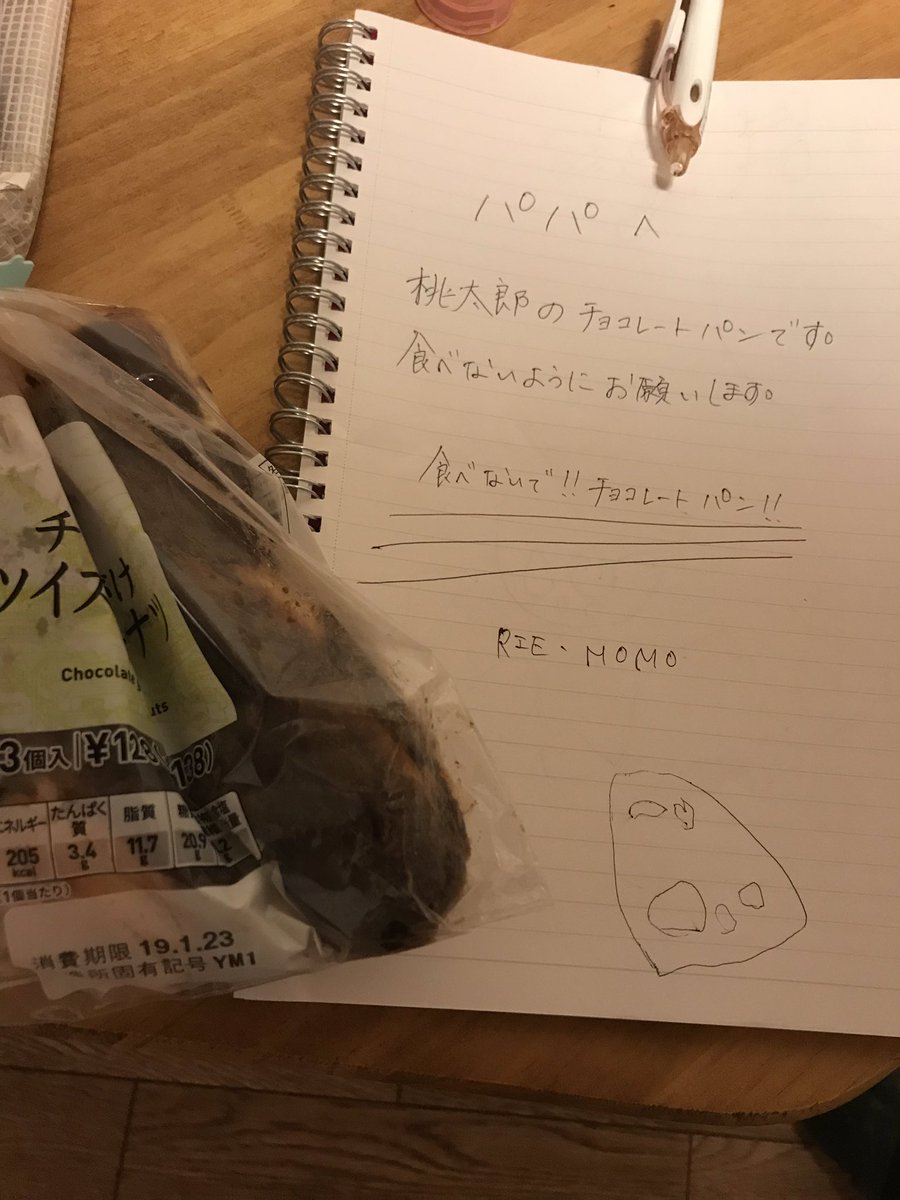 パパへ
桃太郎のチョコレートパンです。
食べないようにお願いします。
食べないで!!チョコレートパン!!
RIE・MOMO
チ
ツイス
け
ナツ
Chocolate
uts
3個入 ¥128
138)
エネルギー
205
kcal
たんぱく質
3.4
g
脂質
11.7
g
20.9
g
(1個当たり)
消費期限 19.1.23
所固有記号 YM1